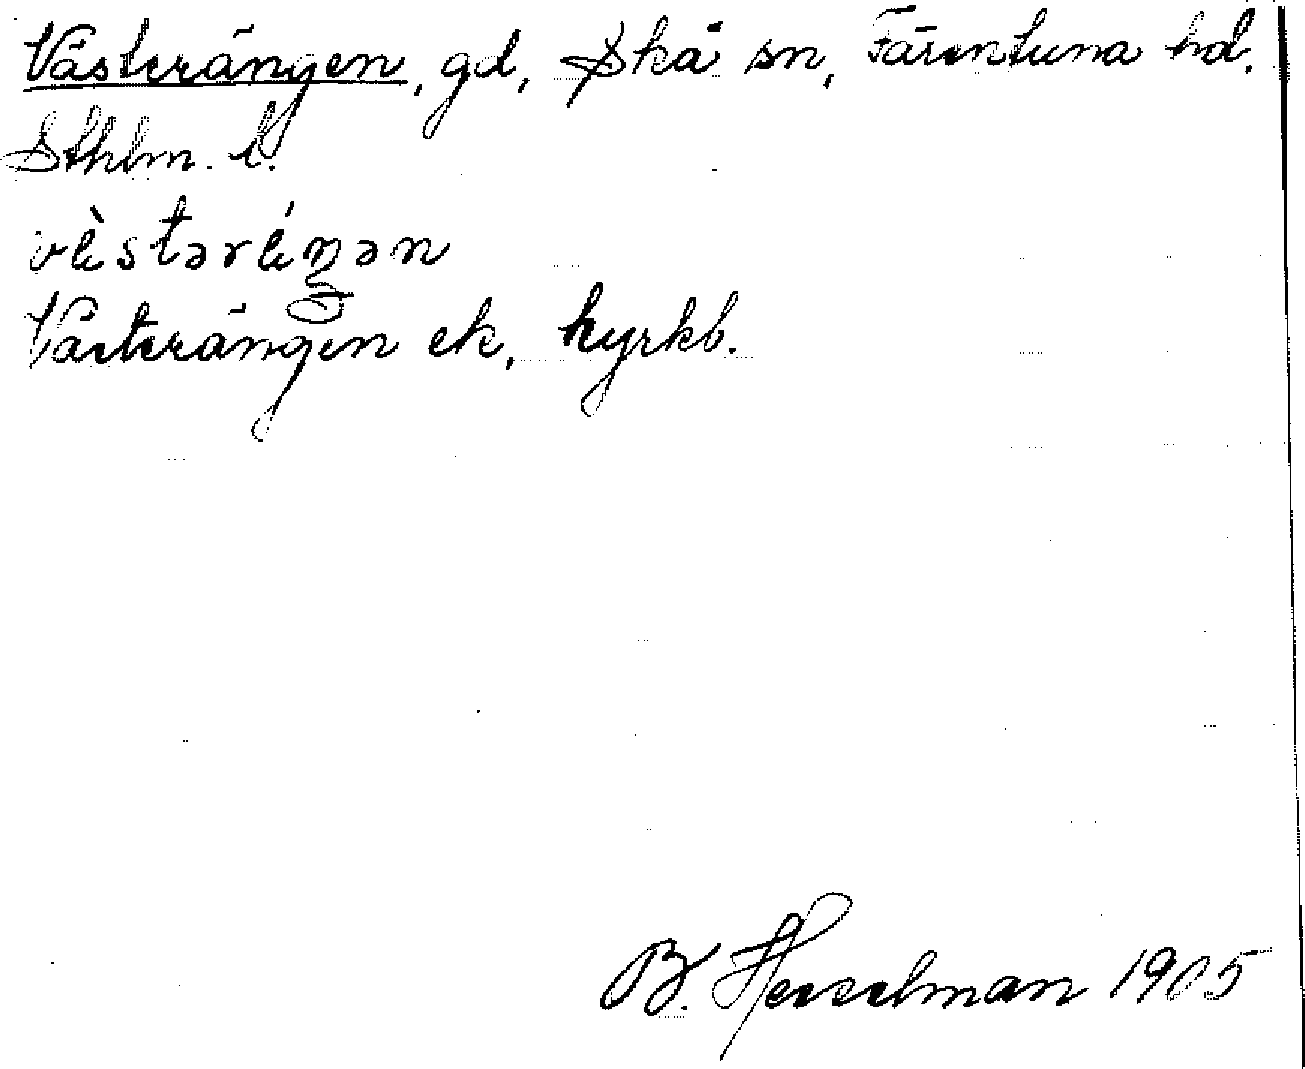 Västerängen, gd, Skå sn, Färentuna hd.
Sthlm. l.
vèstəréŋən
Västerängen ek, kyrkb.
B. Hesselman 1905